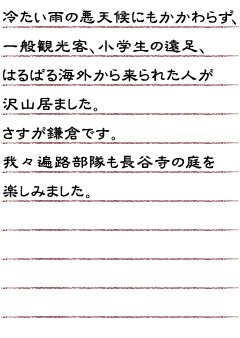 冷たい雨の悪天候にもかかわらず、
一般観光客、小学生の遠足、
はるばる海外から来られた人が
沢山居ました。
さすが鎌倉です。
我々遍路部隊も長谷寺の庭を
楽しみました。